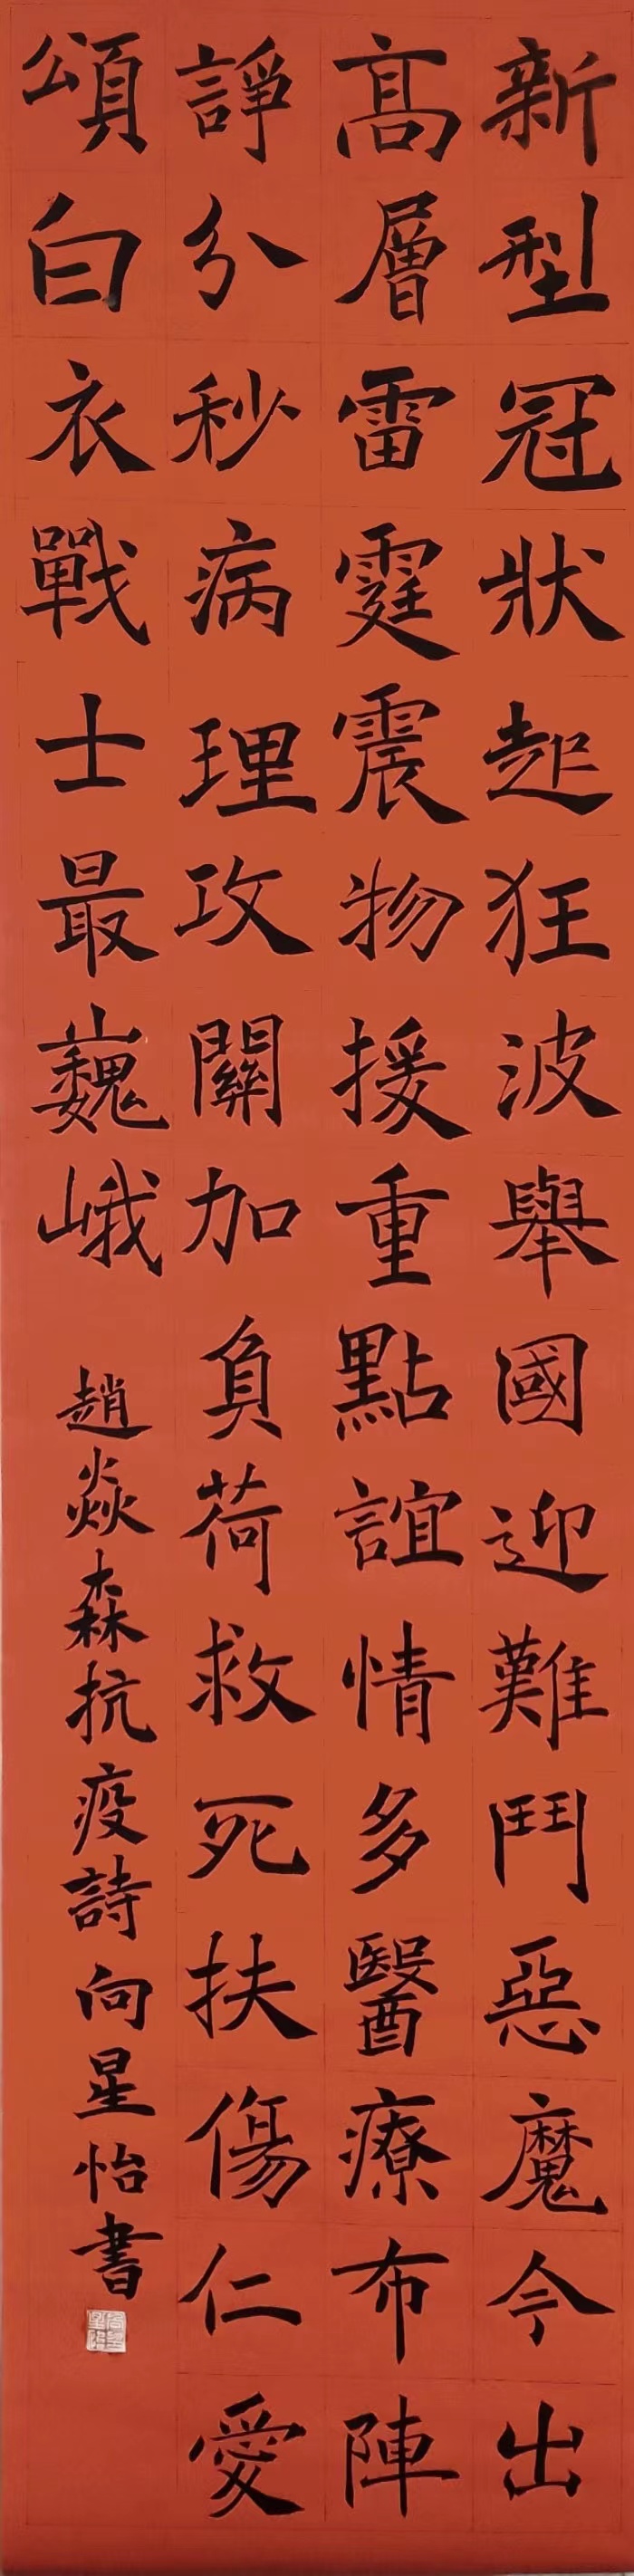 新型冠狀起狂波舉國迎難鬥惡魔今出
高層雷霆震物援重點誼情多醫療布陣
諍分秒病理攻關加負荷救死扶傷仁愛
頌白衣戰士最巍峨
趙焱森抗疫詩向星怡書